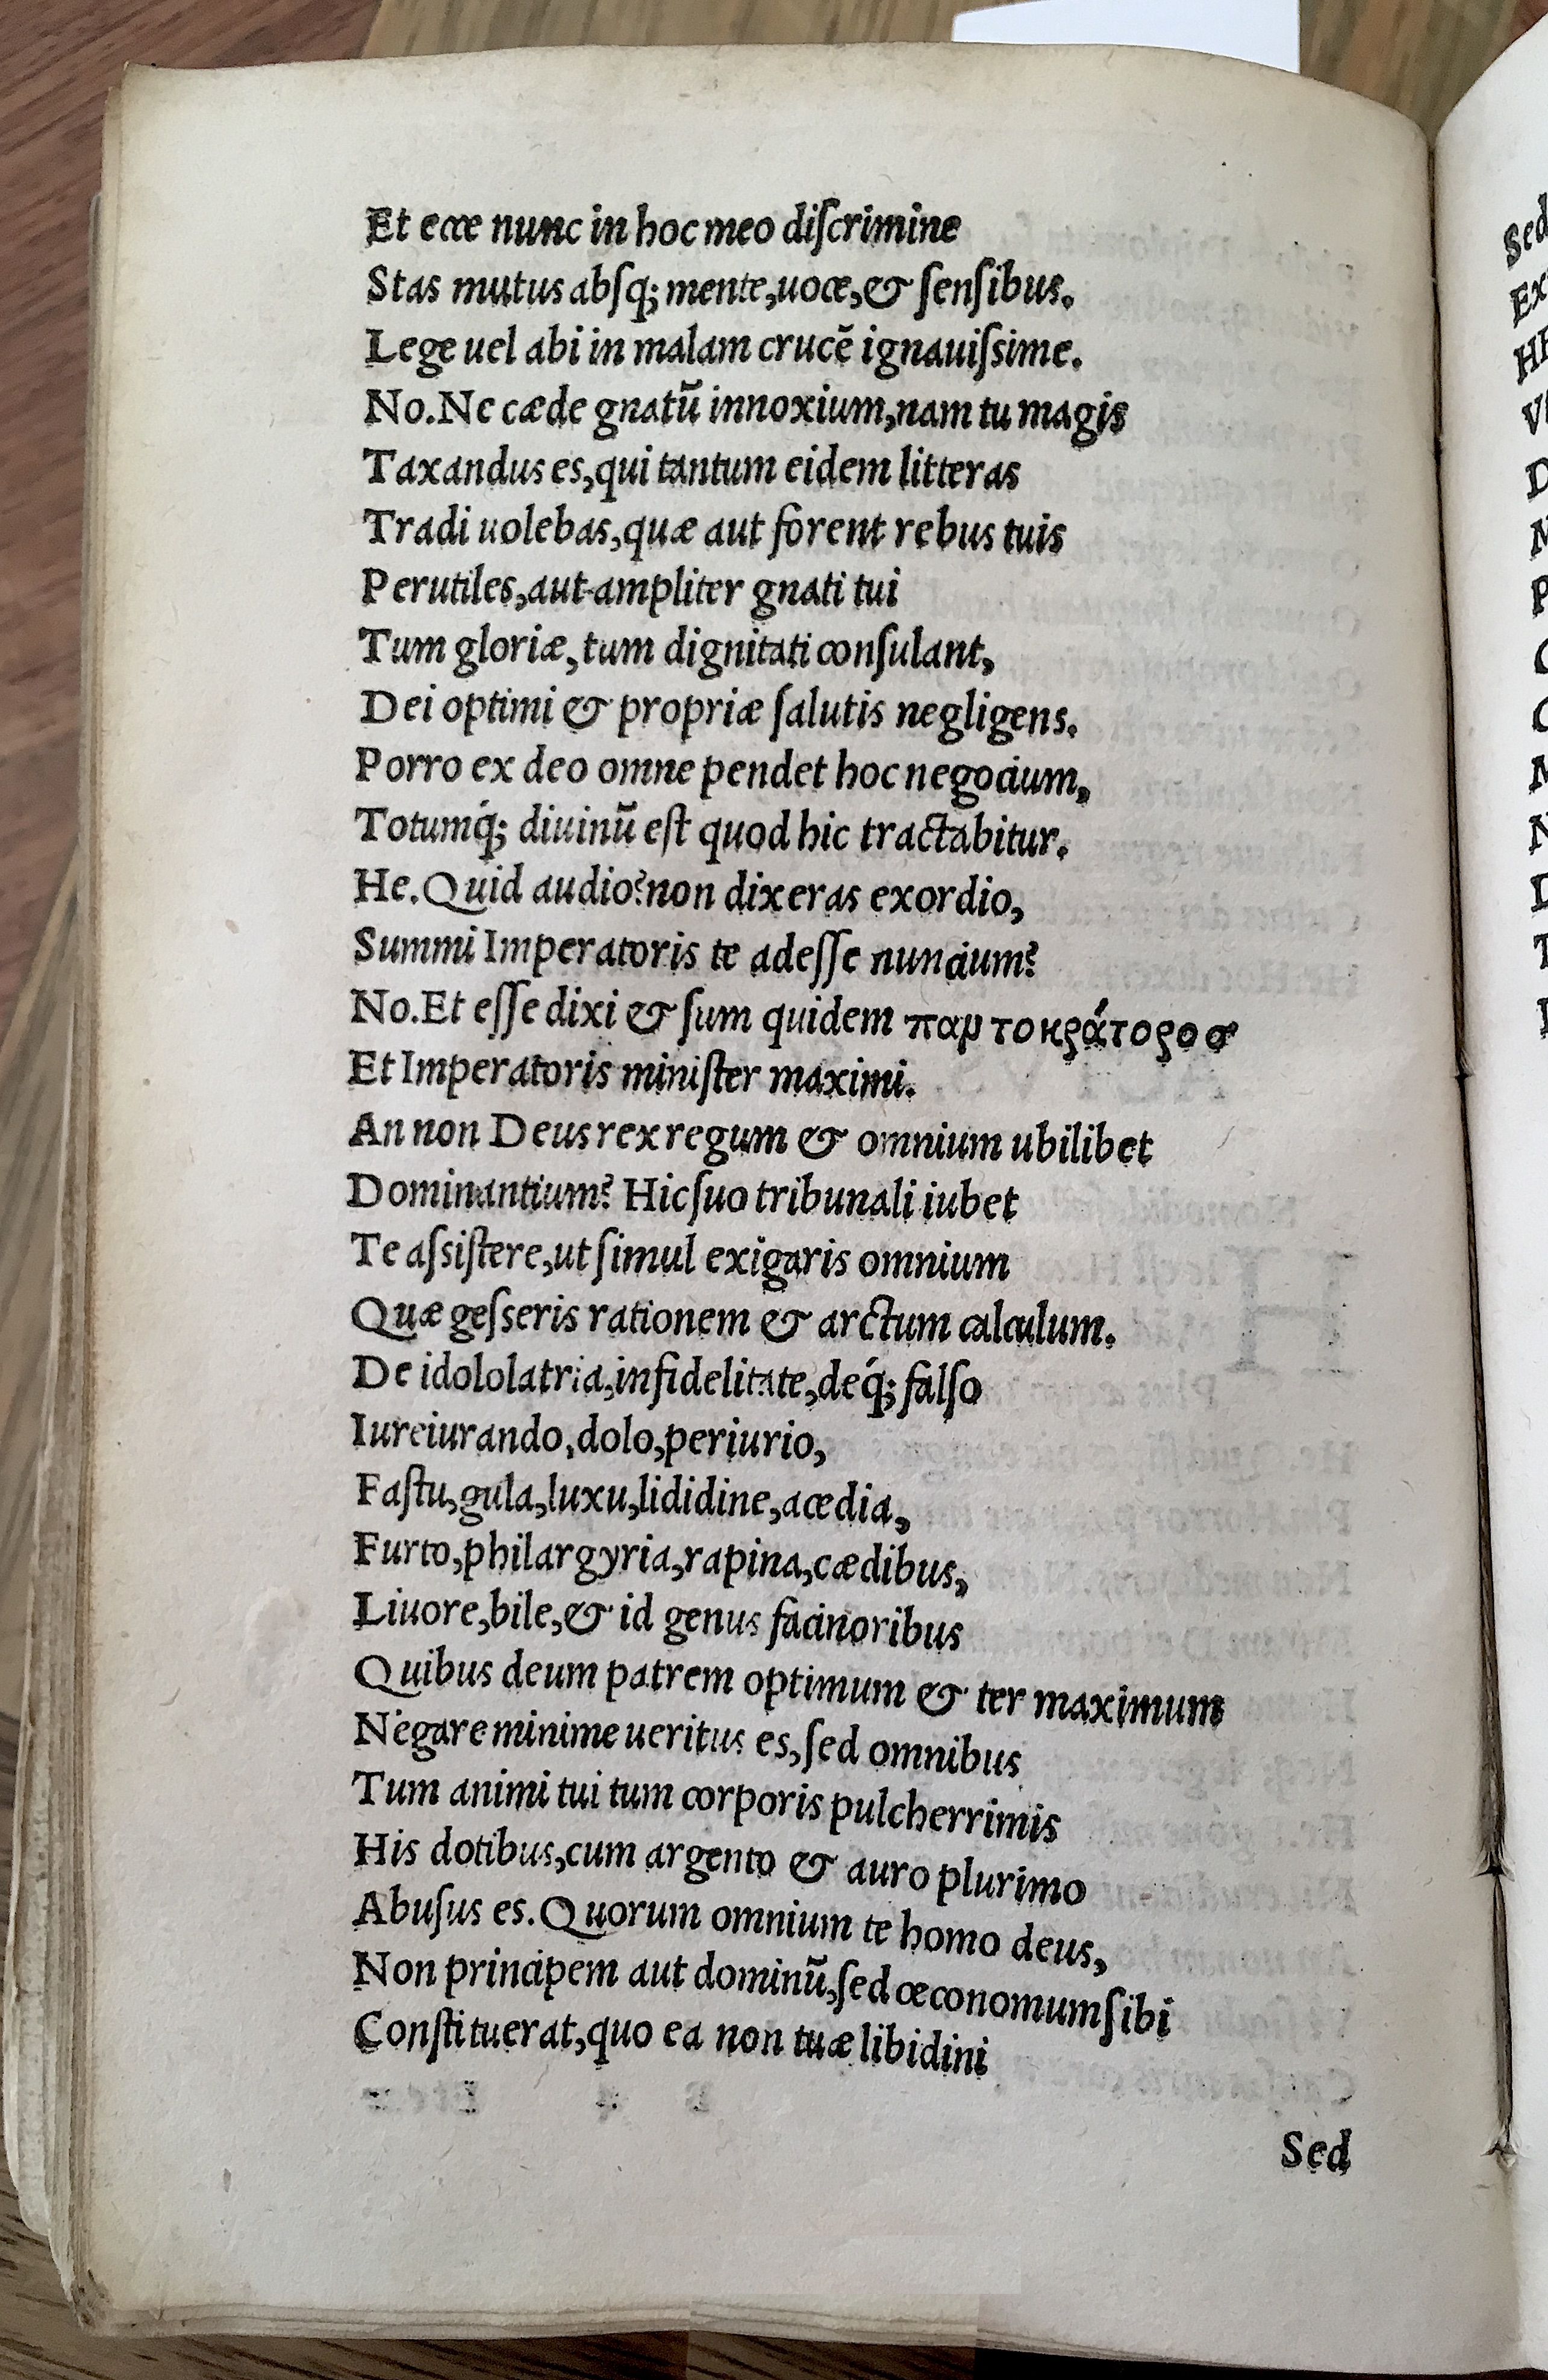 Et ecce nunc in hoc meo diſcrimine
Stas mutus abſq; mente, uoce, & ſenſibus.
Lege uel abi in malam crucẽ ignauiſsime.
No. Ne cæde gnatũ innoxium, nam tu magis
Taxandus es, qui tantum eidem litteras
Tradi uolebas, quæ aut forent rebus tuis
Perutiles, aut ampliter gnati tui
Tum gloriæ, tum dignitati conſulant,
Dei optimi & propriæ ſalutis negligens.
Porro ex deo omne pendet hoc negocium,
Totumq́; diuinũ eſt quod hic tractabitur.
He. Quid audio? non dixeras exordio,
Summi Imperatoris te adeſſe nuncium?
No. Et eſſe dixi & ſum quidem παντοκράτορος
Et Imperatoris miniſter maximi.
An non Deus rex regum & omnium ubilibet
Dominantium? Hic ſuo tribunali iubet
Te aſsiſtere, ut ſimul exigaris omnium
Quæ geſseris rationem & arctum calculum.
De idololatria, infidelitate, deq́; falſo
Iureiurando, dolo, periurio,
Faſtu, gula, luxu, lididine, acedia,
Furto, philargyria, rapina, cædibus,
Liuore, bile, & id genus facinoribus
Quibus deum patrem optimum & ter maximum
Negare minime ueritus es, ſed omnibus
Tum animi tui tum corporis pulcherrimis
His dotibus, cum argento & auro plurimo
Abuſus es. Quorum omnium te homo deus,
Non principem aut dominũ, ſed œconomum ſibi
Conſtituerat, quo ea non tuæ libidini
Sed